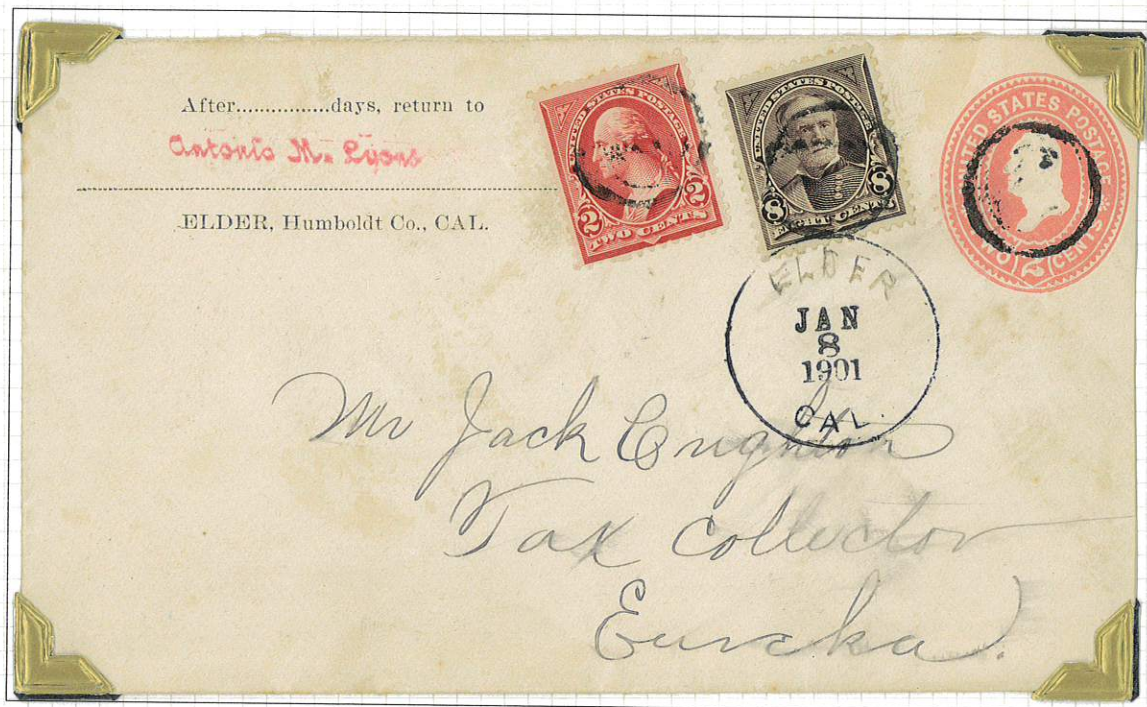 After...............days, return to
Antonio M. Lyons
ELDER, Humboldt Co., CAL.
UNITED STATES POSTAGE
2 2
TWO CENTS
UNITED STATES POSTAGE
8 8
EIGHT CENTS
UNITED STATES POSTAGE
TWO 2 CENTS
ELDER
JAN
8
1901
CAL.
Mr Jack
Tax Collector
Eureka.